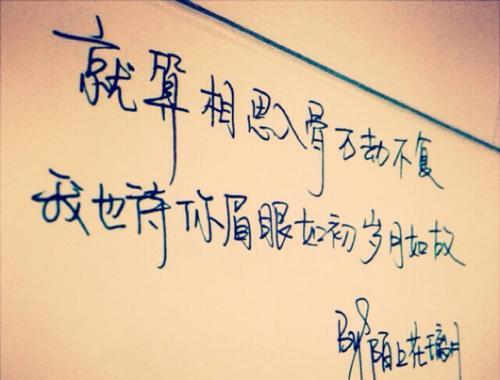 就算相思入骨万劫不复
我也待你眉眼如初岁月如故
By 陌上